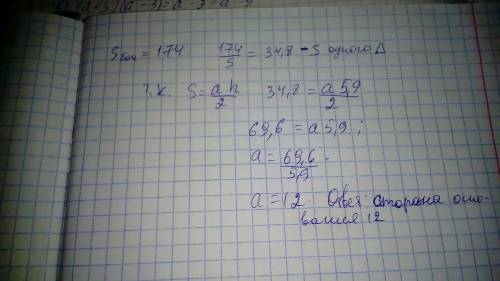 (a+3)(a-3)=a²-3²=a²-9
S бок = 174 174/5 = 34,8 - S одного Δ
т.к. S = ah/2 34,8 = a 5,9/2
69,6 = a 5,9;
a = 69,6/5,9
a = 12 Ответ: сторона осно-
вания 12